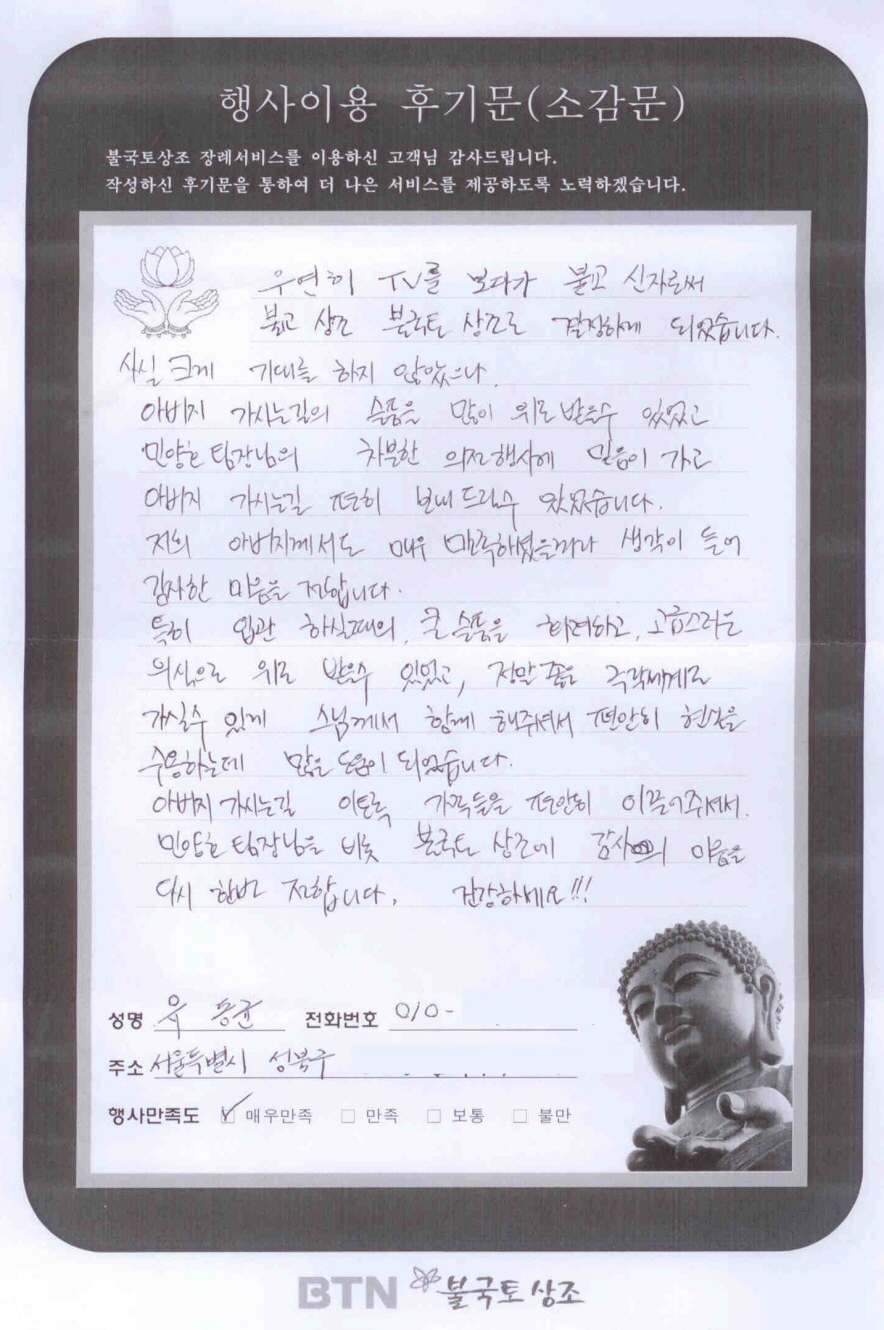 행사이용 후기문(소감문)
불국토상조 장례서비스를 이용하신 고객님 감사드립니다.
작성하신 후기문을 통하여 더 나은 서비스를 제공하도록 노력하겠습니다.
우연히 TV를 보다가 불교 신자로써
불교 상조 불국토 상조로 결정하게 되었습니다.
사실 크게 기대를 하지 않았으나,
아버지 가시는길의 슬픔을 많이 위로 받을수 있었고
민양호 팀장님의 차분한 의전행사에 믿음이 가고
아버지 가시는길 편히 보내 드릴수 있었습니다.
저희 아버지께서도 매우 만족하셨을꺼라 생각이 들어
감사한 마음을 전합니다.
특히 입관 하실때의, 큰 슬픔을 화려하고, 고급스러운
의식으로 위로 받을수 있었고, 정말 좋은 극락세계로
가실수 있게 스님께서 함께 해주셔서 편안히 현실을
수용하는데 많은 도움이 되었습니다.
아버지 가시는길 이토록 가족들을 편안히 이끌어주셔서.
민양호 팀장님을 비롯 불국토 상조에 감사의 마음을
다시 한번 전합니다. 건강하세요!!!
성명 유 동균 전화번호 010-
주소 서울특별시 성북구
행사만족도 ☑ 매우만족 □ 만족 □ 보통 □ 불만
BTN 불국토상조